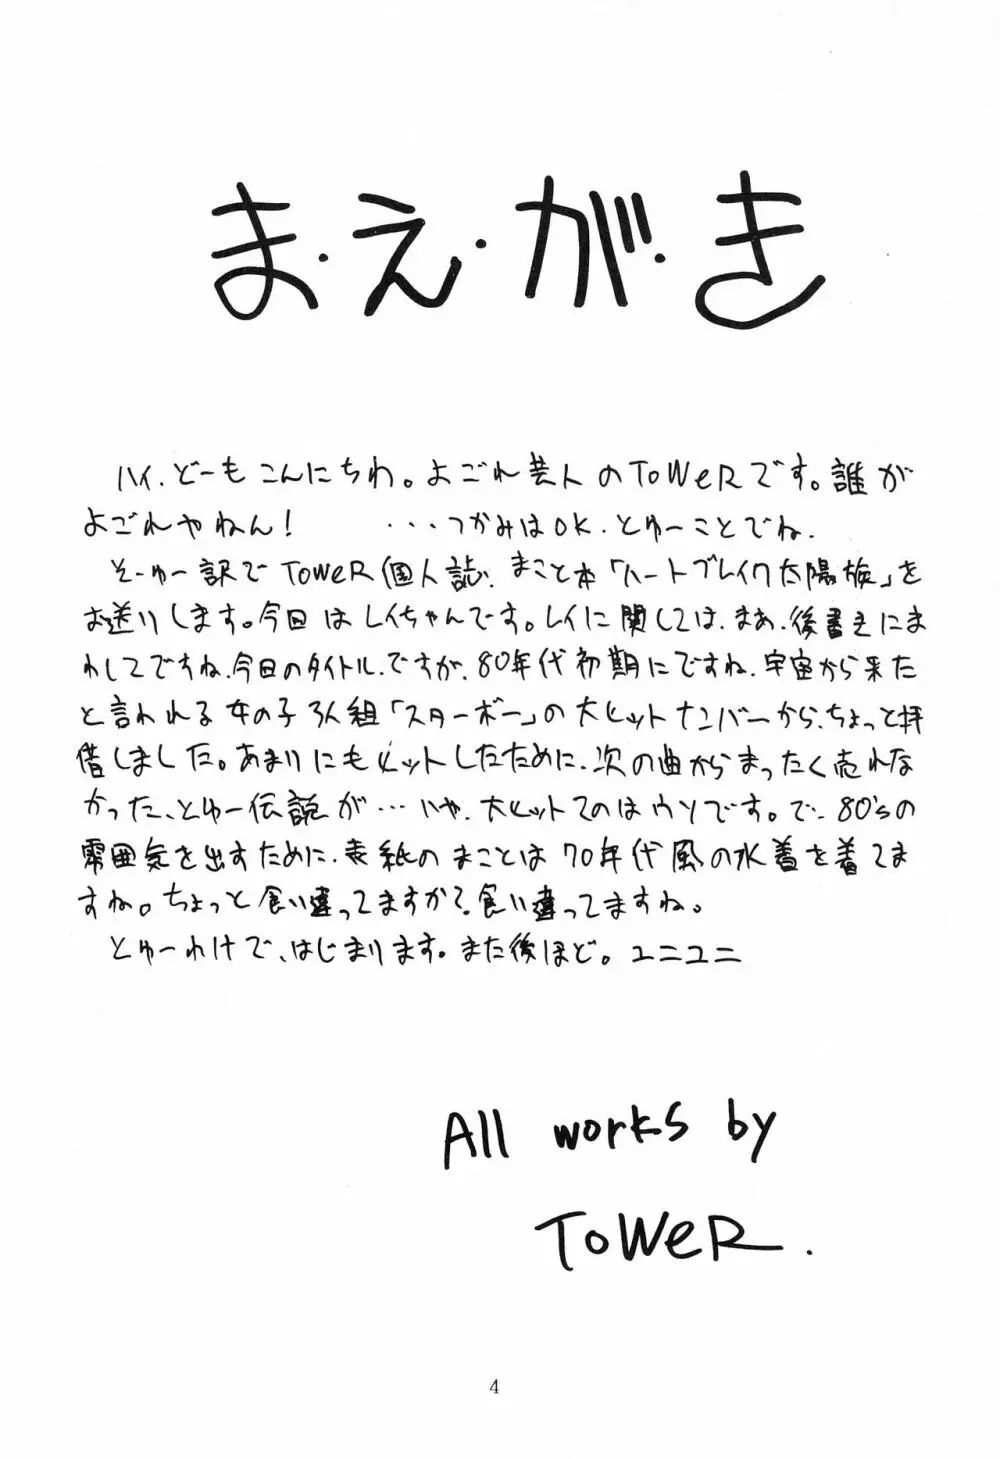 ま・え・が・き
ハイ、どーもこんにちわ。よごれ芸人のToWeRです。誰が
よごれやねん! ・・・つかみはOK、とゆーことでね、
そーゆー訳でToWeR個人誌、まこと本「ハートブレイク太陽族」を
お送りします。今回はレイちゃんです。レイに関しては、まあ、後書きにま
わしてですね、今日のタイトル、ですが、80年代初期にですね、宇宙から来た
と言われる女の子3人組「スターボー」の大ヒットナンバーから、ちょっと拝
借しました。あまりにもヒットしたために、次の曲からまったく売れな
かった、とゆー伝説が・・・ハヤ、大ヒットてのはウソです。で、80'sの
雰囲気を出すために、表紙のまことは70年代風の水着を着てま
すね。ちょっと食い違ってますか?食い違ってますね。
とゆーわけで、はじまります。また後ほど。ユニユニ
All works by
ToWeR.
4